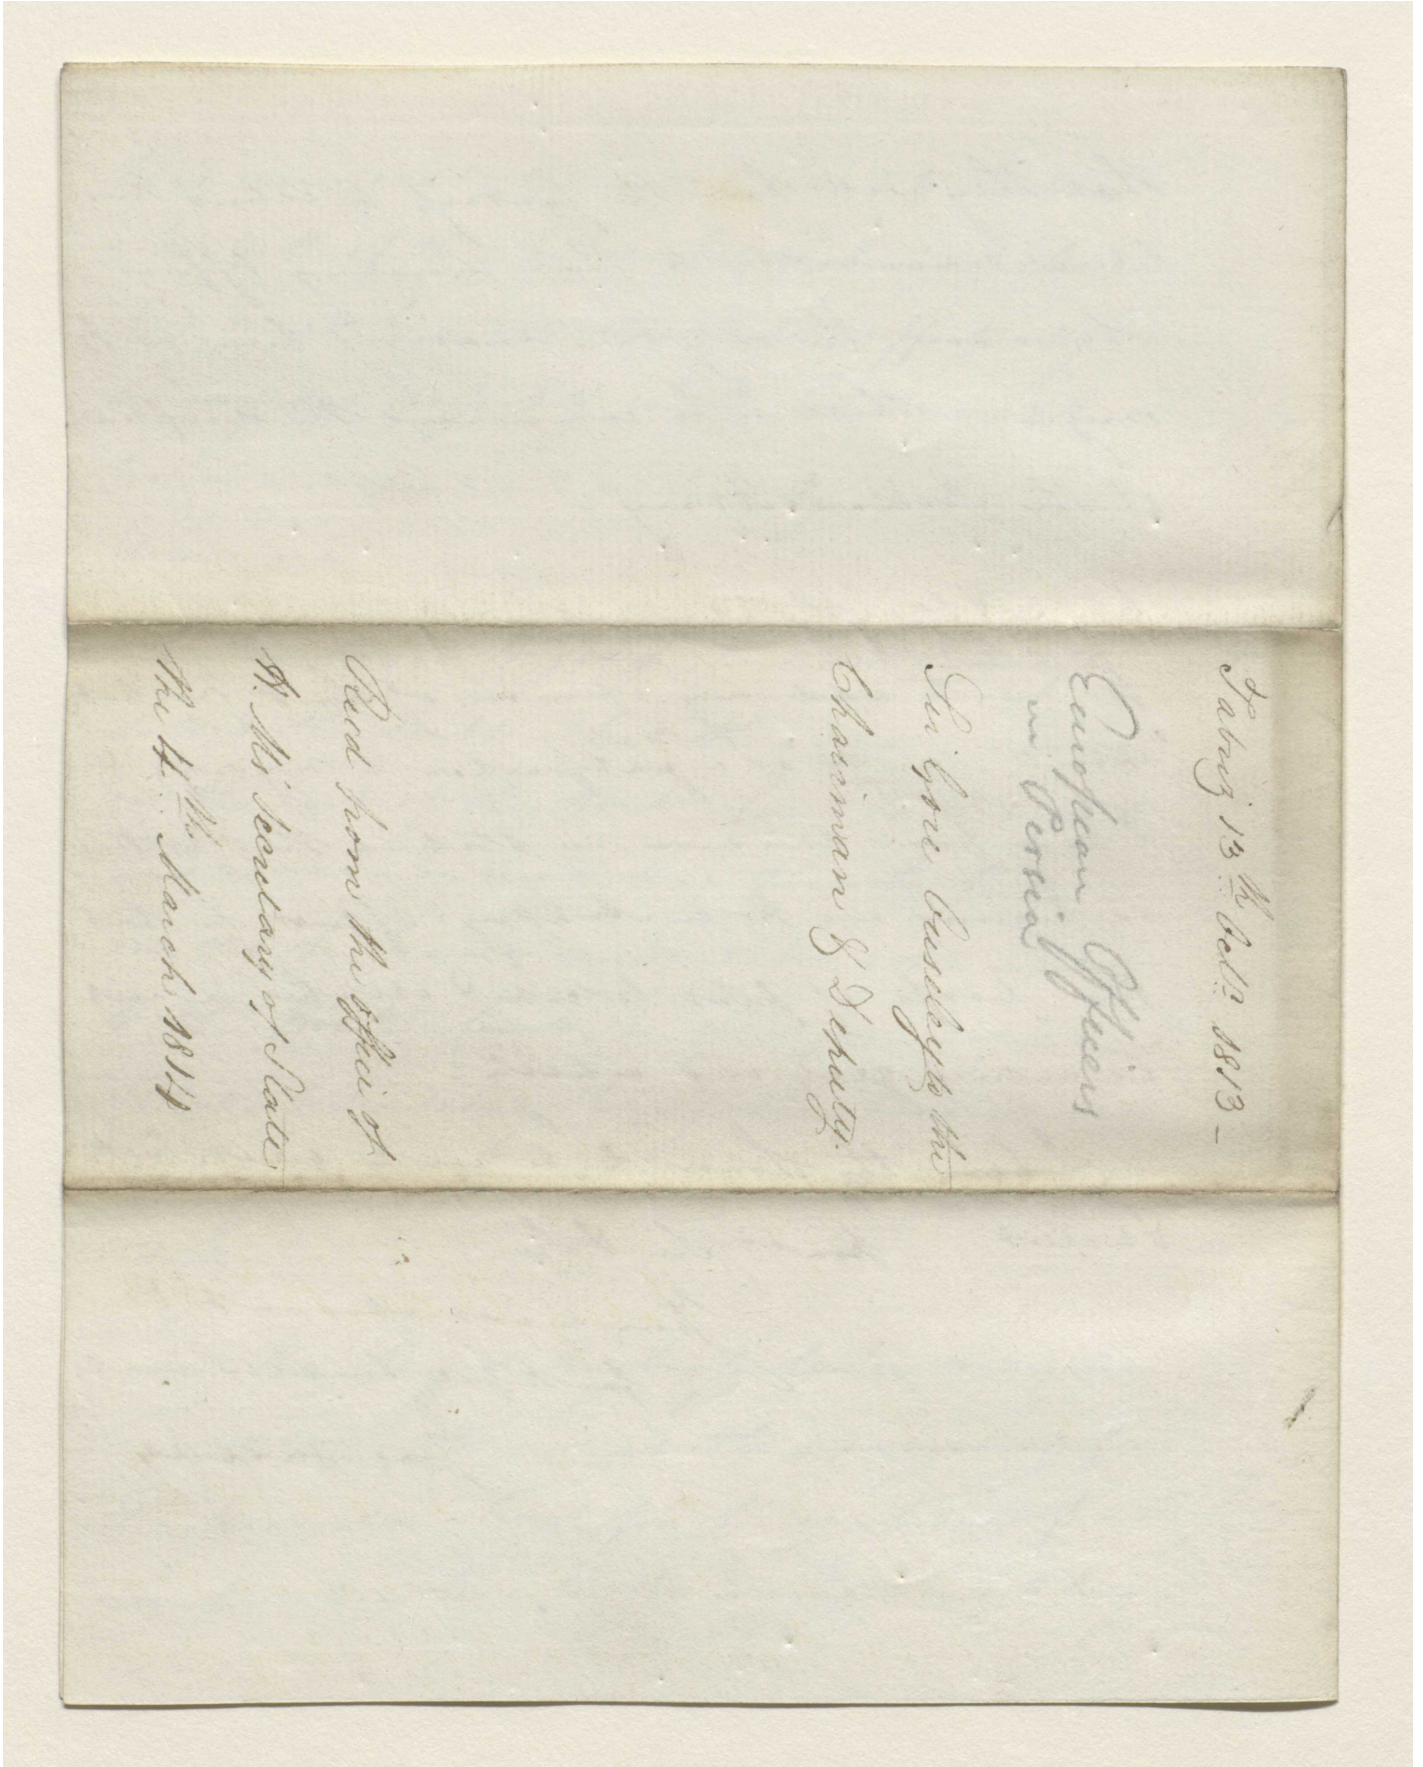 Tabriz 13th. Octr. 1813 –
European Officers
in Persia
Sir Gore Ouseley to the
Chairman & Deputy.
Recd from the office of
H. M's Secretary of State
the 4th. March 1814